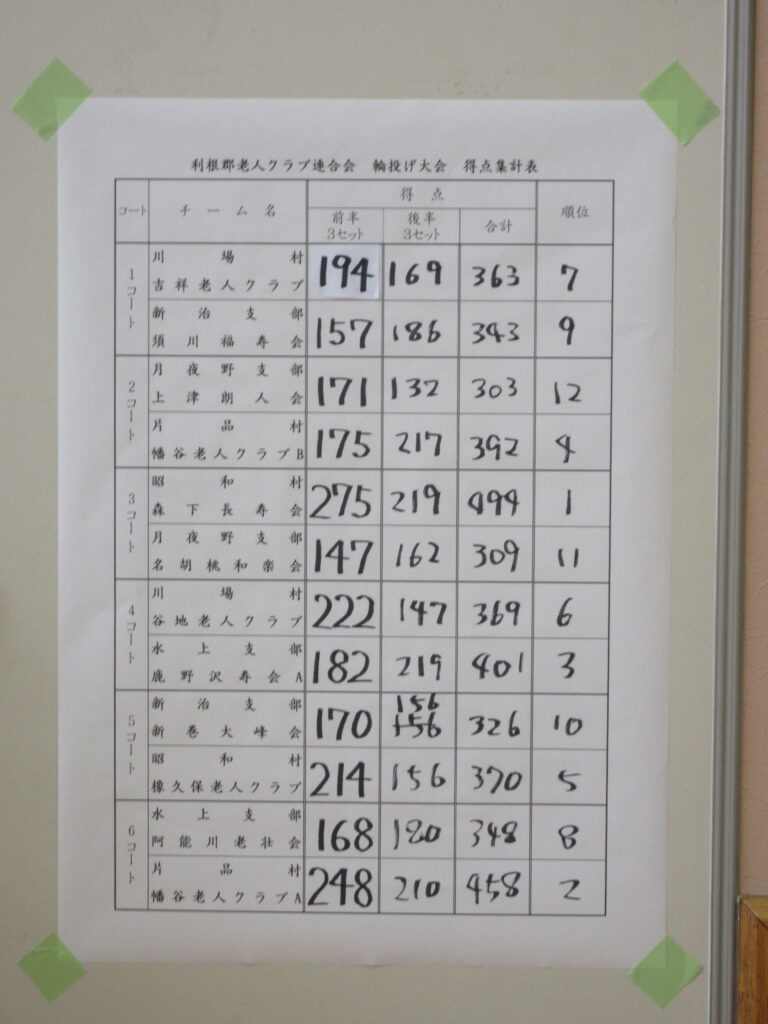 利根郡老人クラブ連合会 輪投げ大会 得点集計表
コート チーム名 得点 順位
前半3セット 後半3セット 合計
1コート
川場村
吉祥老人クラブ 194 169 363 7
新治支部
須川福寿会 157 186 343 9
2コート
月夜野支部
上津朗人会 171 132 303 12
片品村
幡谷老人クラブB 175 217 392 4
3コート
昭和村
森下長寿会 275 219 494 1
月夜野支部
名胡桃和楽会 147 162 309 11
4コート
川場村
谷地老人クラブ 222 147 369 6
水上支部
鹿野沢寿会A 182 219 401 3
5コート
新治支部 156
新巻大峰会 170 156 326 10
昭和村
橡久保老人クラブ 214 156 370 5
6コート
水上支部
阿能川老壮会 168 180 348 8
片品村
幡谷老人クラブA 248 210 458 2